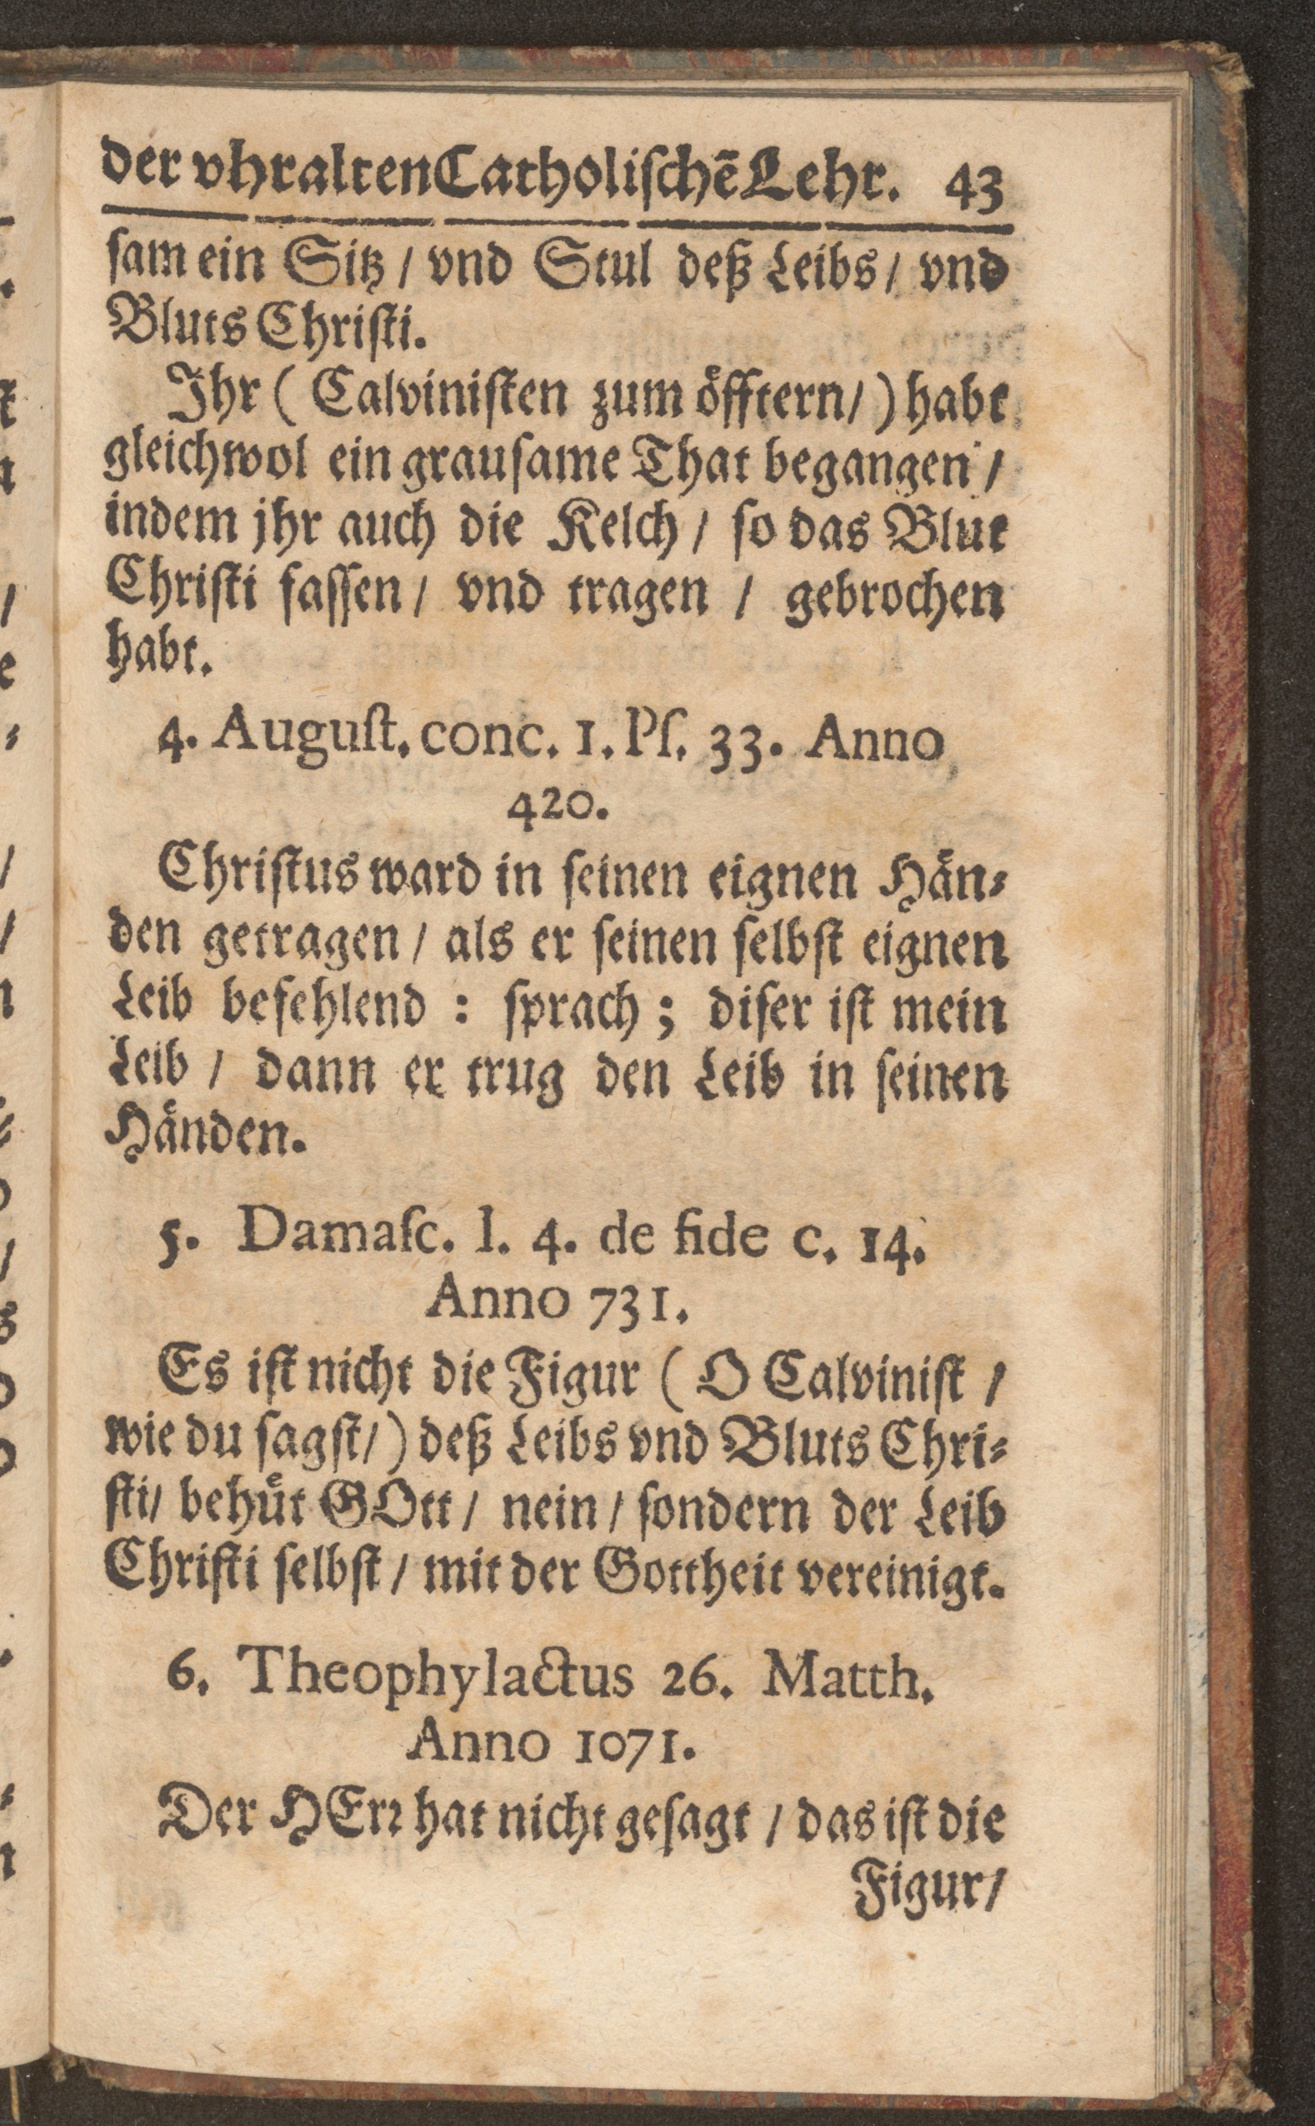 der vhralten Catholischē Lehr. 43
sam ein Sitz / vnd Stul deß Leibs / vnd
Bluts Christi.
Ihr ( Calvinisten zum öfftern / ) habt
gleichwol ein grausame That begangen /
indem jhr auch die Kelch / so das Blut
Christi fassen / vnd tragen / gebrochen
habt.
4. August. conc. 1. Ps. 33. Anno
420.
Christus ward in seinen eignen Hän⸗
den getragen / als er seinen selbst eignen
Leib befehlend : sprach ; diser ist mein
Leib / dann er trug den Leib in seinen
Händen.
5. Damasc. l. 4. de fide c. 14.
Anno 731.
Es ist nicht die Figur ( O Calvinist /
wie du sagst / ) deß Leibs vnd Bluts Chri⸗
sti / behüt GOtt / nein / sondern der Leib
Christi selbst / mit der Gottheit vereinigt.
6. Theophylactus 26. Matth.
Anno 1071.
Der HErr hat nicht gesagt / das ist die
Figur /